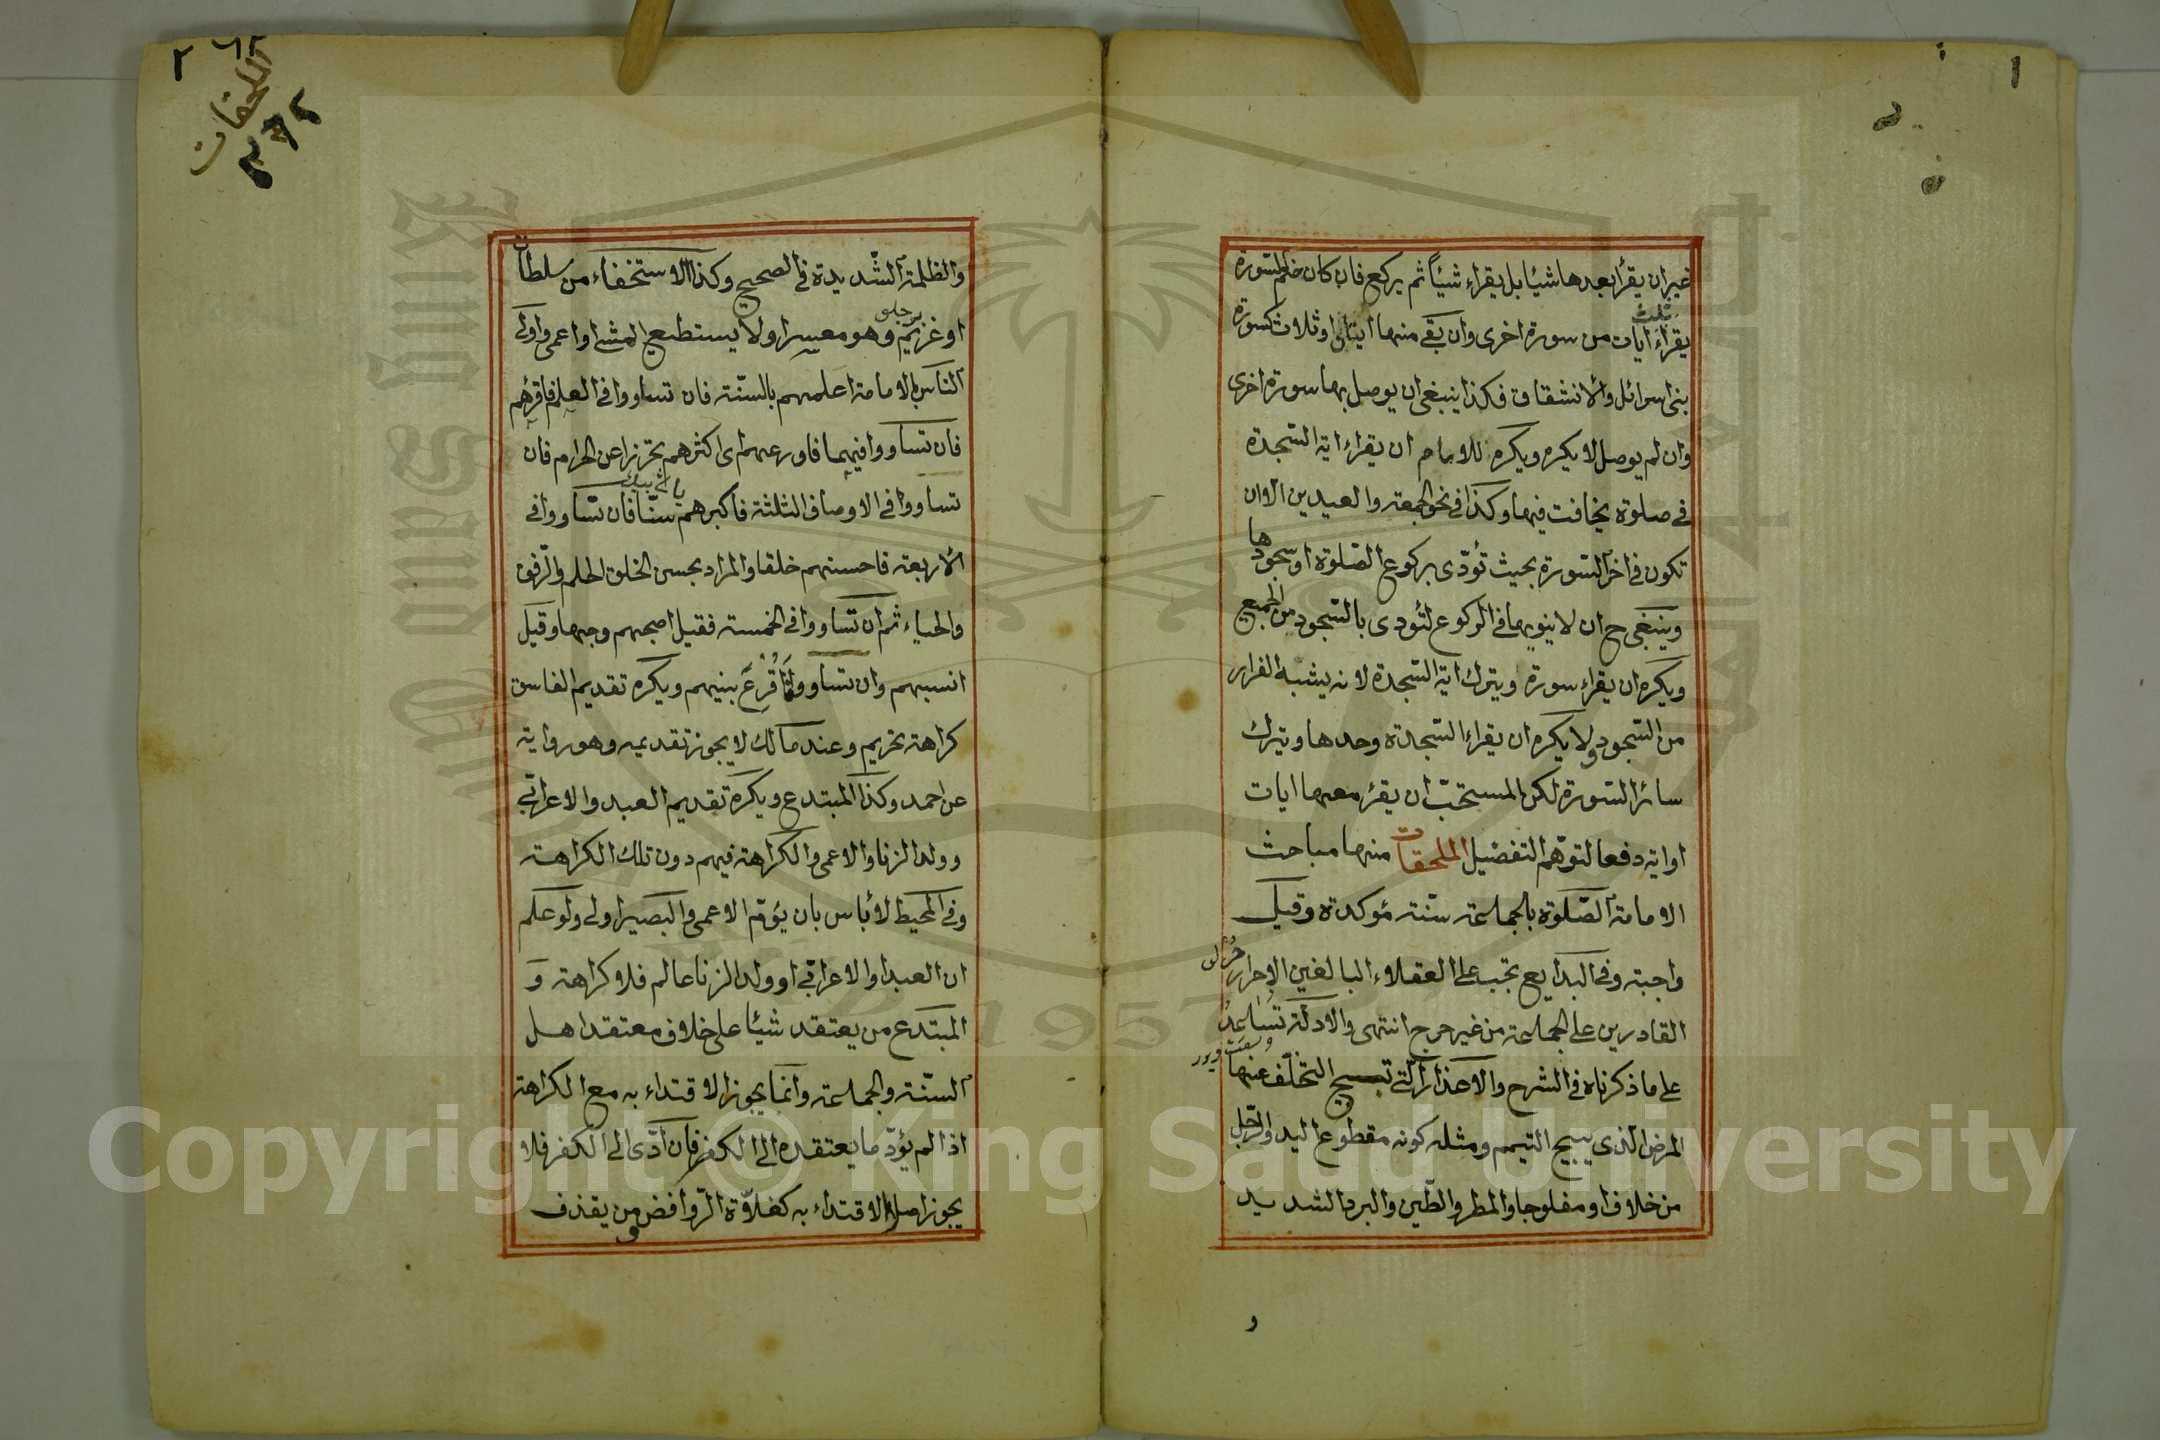 ١
غير ان يقرأ بعدها شيئا بل يقراء شيئاً ثم يركع فان كان ختم السّورة
ثلث
يقراء ايات من سورة اخرى وان بقى منها ايتان او ثلاث كسورة
بنى اسرائل والانشقاق فكذا ينبغى ان يوصل بها سورة اخرى
وان لم يوصل لا يكره ويكره للامام ان يقراء اية السّجدة
فى صلوة يخافت فيها وكذا فى نحو الجمعة والعيدين الا ان
تكون فى اخر السّورة بحيث تؤدّى بركوع الصّلوة او سجودها
وينبغى ح ان لا ينويها فى الركوع لتؤدى بالسّجود من الجميع
ويكره ان يقراء سورة ويترك اية السّجدة لانه يشبه الفرار
من السّجود ولا يكره ان يقراء السّجدة وحدها ويترك
سائر السّورة لكن المستحبّ ان يقرء معها ايات
او اية دفعا لتوهّم التفضيل الملحقات منها مباحث
الامامة الصّلوة بالجماعة سنّة مؤكدة وقيل
واجبة وفى البدايع تجب على العقلاء البالغين الاحرار
القادرين على الجماعة من غير حرج انتهى والادلّة تساعد
على ما ذكرناه فى الشرح والاعذار الّتى تبيح التخلّف عنها
المرض الّذى يبيح التيمم ومثله كونه مقطوع اليد والرّجل
من خلاف او مفلوجا والمطر والطّين والبرد الشديد
و
٢
الملحقات
والظلمة الشّديدة فى الصحيح وكذا الاستخفاء من سلطان
او غريم وهو معسر اولا يستطيع المشى او اعمى واولى
النّاس بالامامة اعلمهم بالسّنّة فان تساووا فى العلم فاقرؤهم
فان تساووا فيهما فاورعهم اى اكثرهم تحرزا عن الحرام فان
تساووا فى الاوصاف الثلثة فاكبرهم سنّا فان تساووا فى
الاربعة فاحسنهم خلقا والمراد بحسن الخلق الحلم والرّفق
والحياء ثم ان تساووا فى الخمسة فقيل اصبحهم وجها وقيل
انسبهم وان تساووا اُقرع بينهم ويكره تقديم الفاسق
كراهة تحريم وعند مالك لا يجوز تقديمه وهو رواية
عن احمد وكذا المبتدع ويكره تقديم العبد والاعرابّى
وولد الزنا والاعمى والكراهة فيهم دون تلك الكراهة
وفى المحيط لا بأس بان يؤمّ الاعمى والبصير اولى ولو علم
ان العبد او الاعرابّى او ولد الزنا عالم فلا كراهة و
المبتدع من يعتقد شيئا على خلاف معتقد اهل
السّنّة والجماعة وانّما يجوز الاقتداء به مع الكراهة
اذا لم يؤدّ ما يعتقده الى الكفر فان ادّى الى الكفر فلا
يجوز اصلا الاقتداء به كغلاة الرّوافض ومن يقذف
Copyright © King Saud University
1957